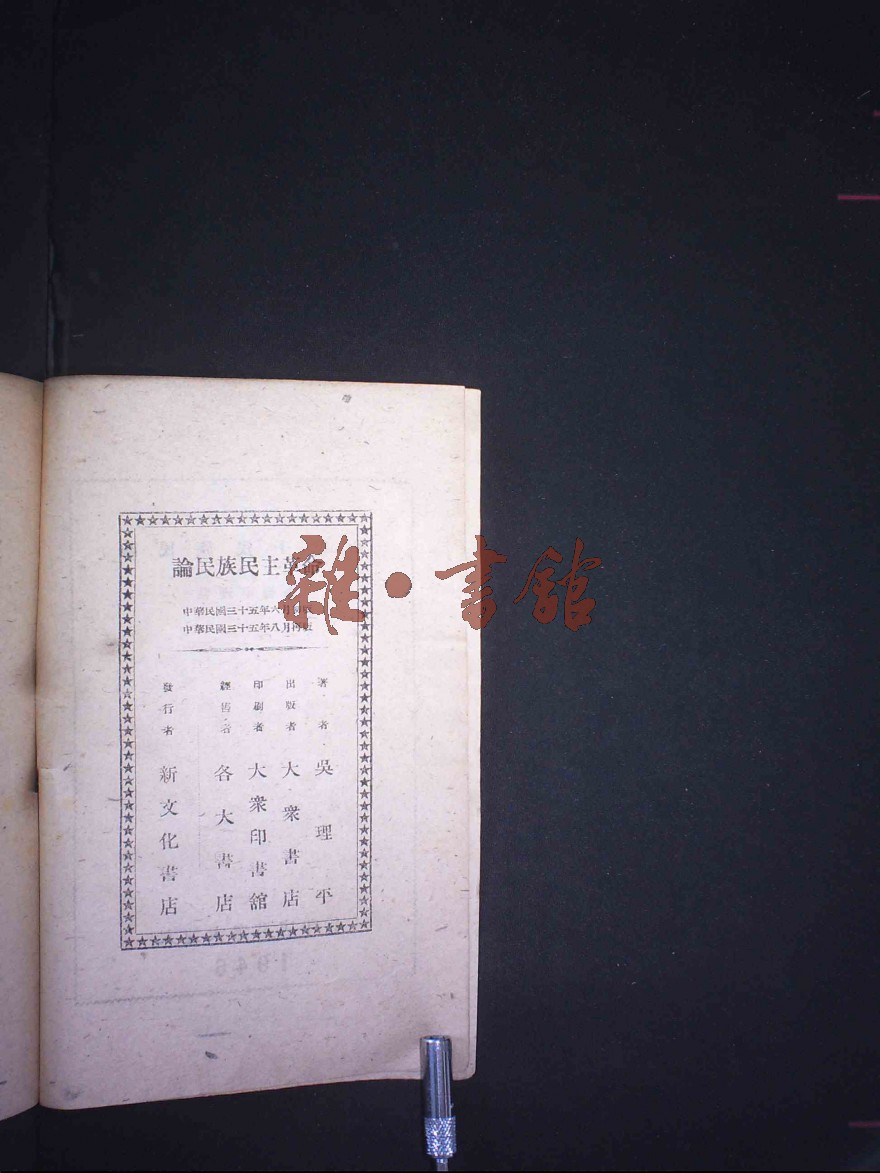 論民族民主革命
中華民國三十五年六月初版
中華民國三十五年八月再版
著者 吳理平
出版者 大衆書店
印刷者 大衆印書館
經售者 各大書店
發行者 新文化書店
雜·書館
1946